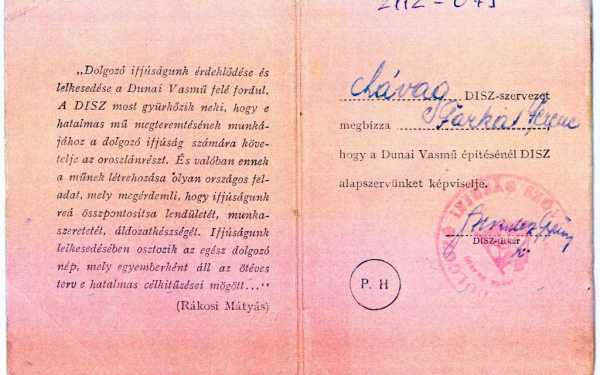 „Dolgozó ifjúságunk érdeklődése és
lelkesedése a Dunai Vasmű felé fordul.
A DISZ most gyürkőzik neki, hogy e
hatalmas mű megteremtésének munká-
jához a dolgozó ifjúság számára köve-
telje az oroszlánrészt. És valóban ennek
a műnek létrehozása olyan országos fel-
adat, mely megérdemli, hogy ifjúságunk
reá összpontosítsa lendületét, munka-
szeretetét, áldozatkészségét. Ifjúságunk
lelkesedésében osztozik az egész dolgozó
nép, mely egyemberként áll az ötéves
terv e hatalmas célkitűzései mögött..."
(Rákosi Mátyás)
Lávag DISZ-szervezet
megbízza Farkas Ferenc
hogy a Dunai Vasmű építésénél DISZ
alapszervünket képviselje.
DISZ-titkár
P. H